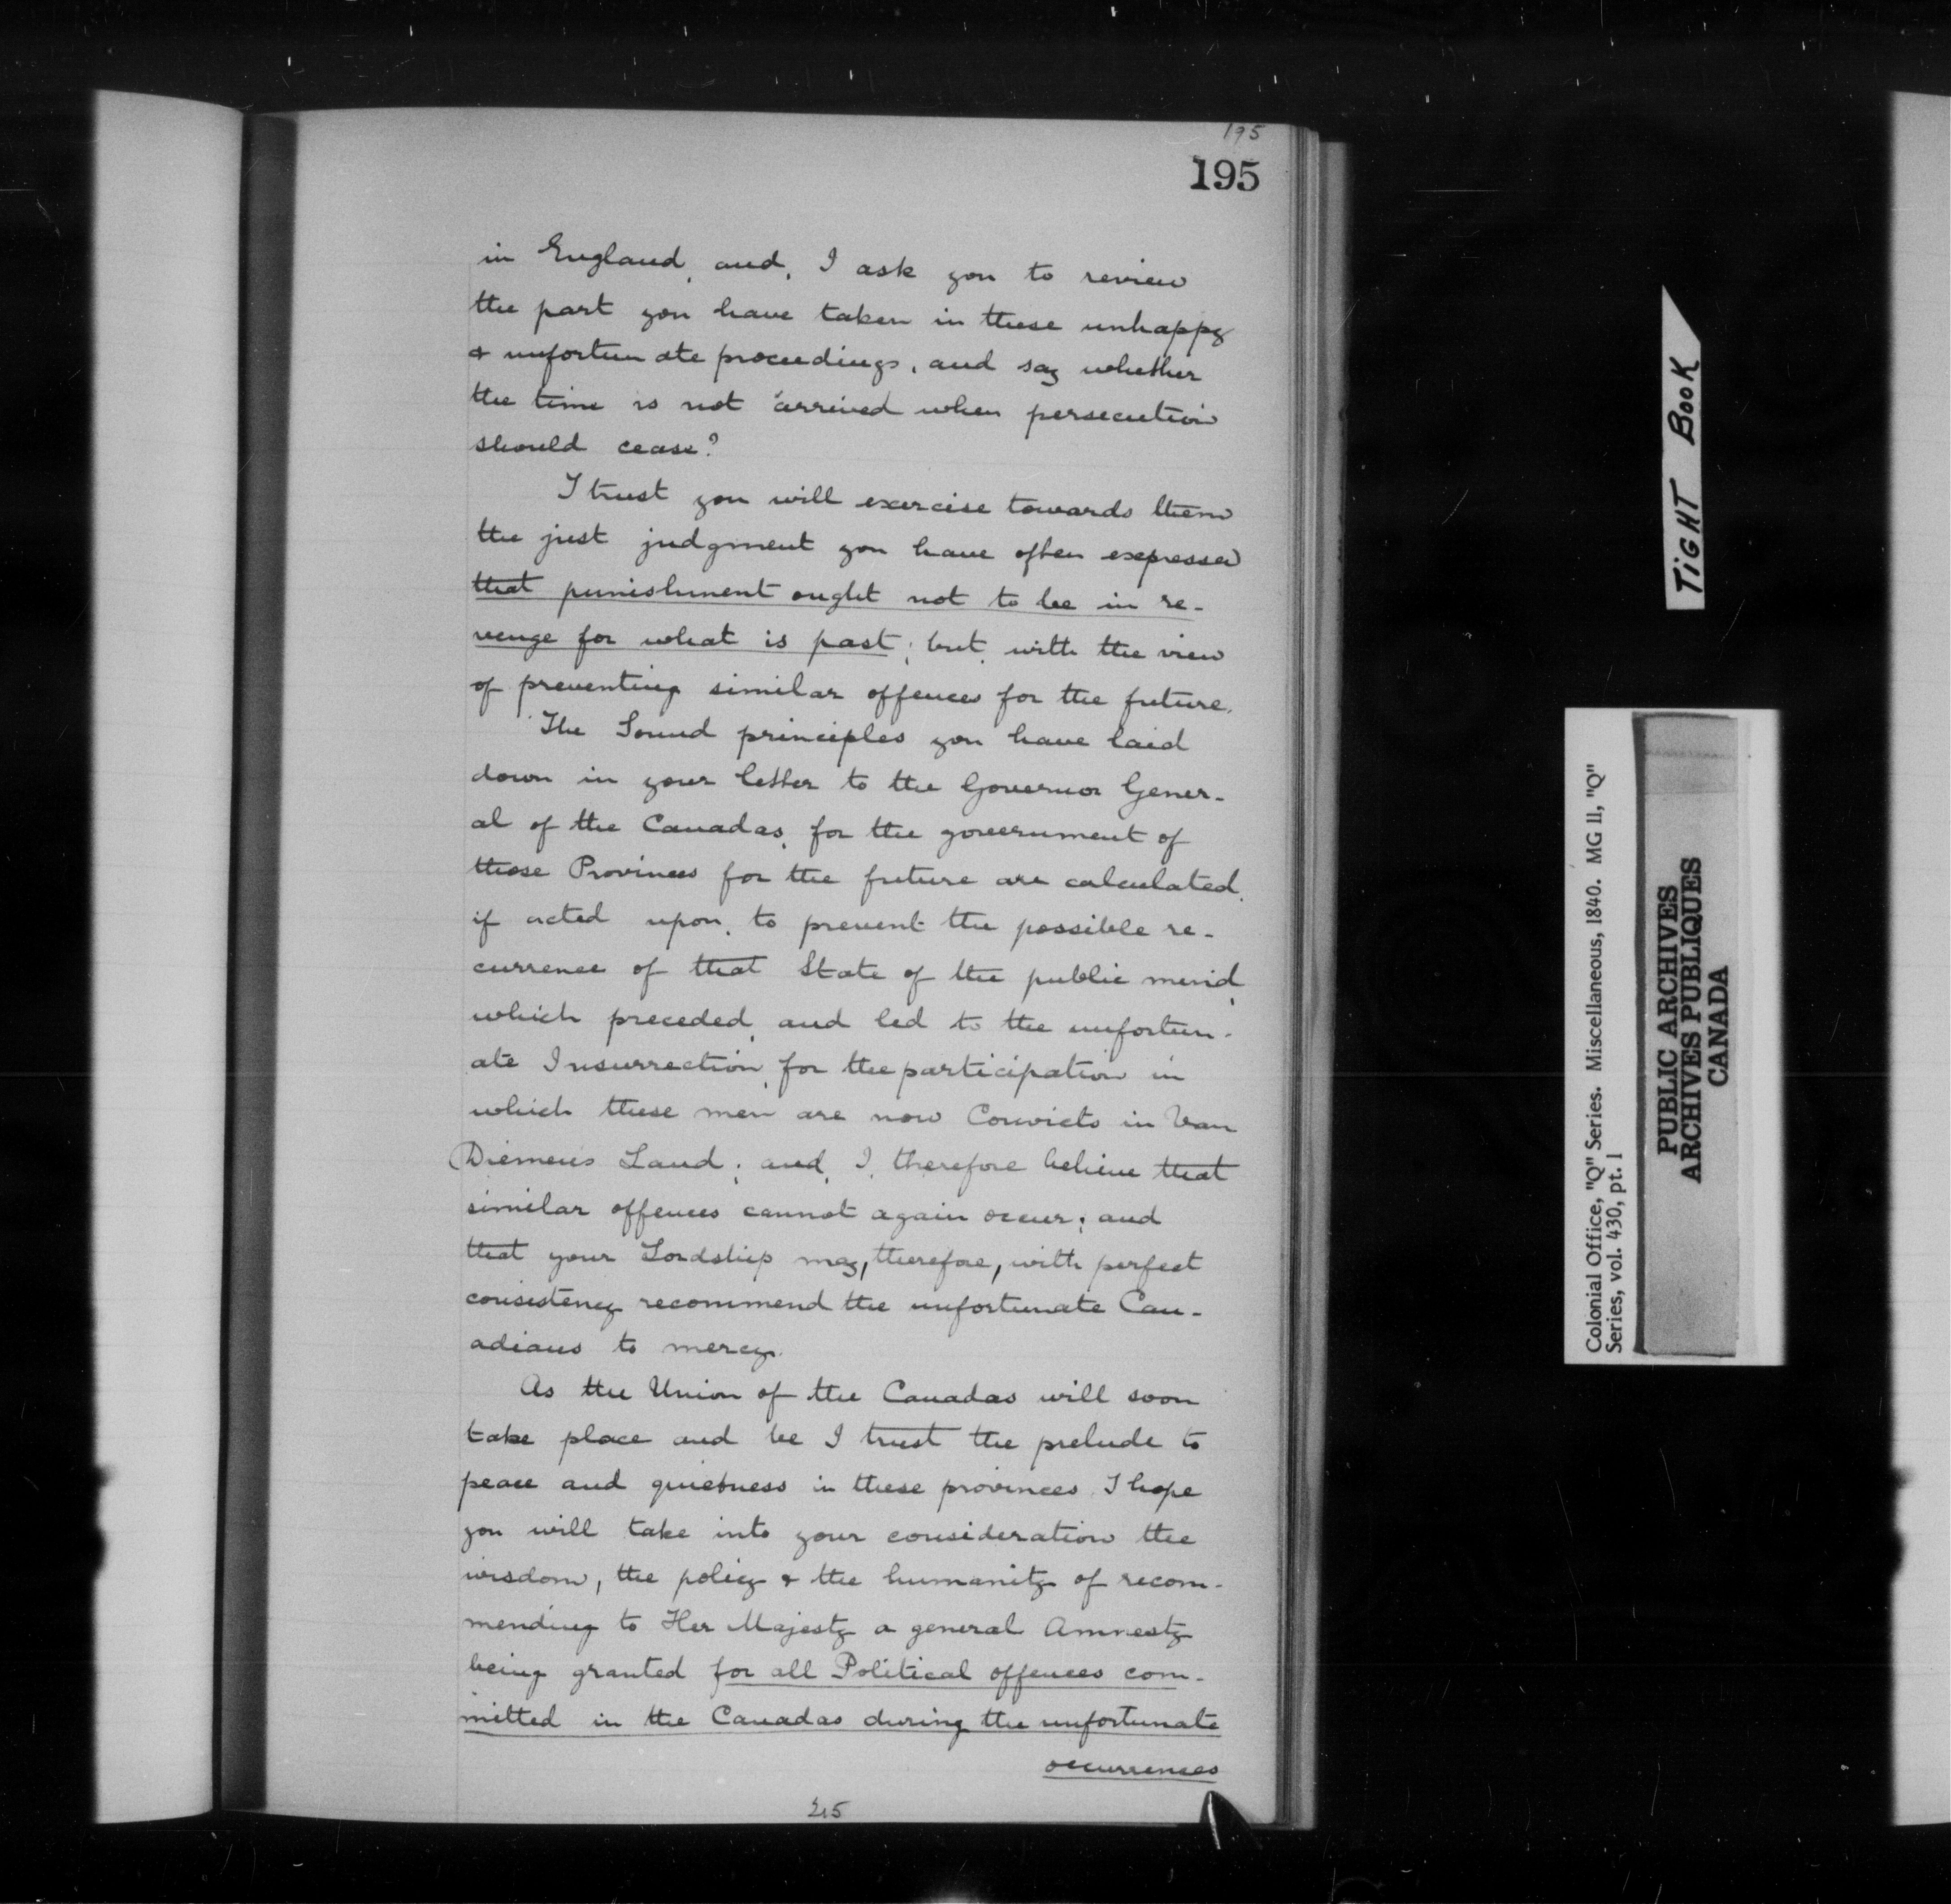 195
195
in England, and, I ask you to review
the part you have taken in these unhappy
& unfortunate proceedings, and say whether
the time is not arrived when persecution
should cease?
I trust you will exercise towards them
the just judgment you have often expressed
that punishment ought not to be in re-
venge for what is past; but, with the view
of preventing similar offences for the future.
The Sound principles you have laid
down in your letter to the Governor Gener-
al of the Canadas, for the government of
those Provinces for the future are calculated,
if acted upon, to prevent the possible re-
currence of that State of the public mind,
which preceded, and led to the unfortun-
ate Insurrection, for the participation in
which these men are now Convicts in Van
Diemen's Land; and, I, therefore believe that
similar offences cannot again occur; and
that your Lordship may, therefore, with perfect
consistency recommend the unfortunate Can-
adians to mercy.
As the Union of the Canadas will soon
take place and be I trust the prelude to
peace and quietness in these provinces, I hope
you will take into your consideration the
wisdom, the policy & the humanity of recom-
mending to Her Majesty a general Amnesty
being granted for all Political offences com-
mitted in the Canadas during the unfortunate
occurrences
215
TiGHT BOOK
Colonial Office, "Q" Series. Miscellaneous, 1840. MG 11, "Q"
Series, vol. 430, pt. 1
PUBLIC ARCHIVES
ARCHIVES PUBLIQUES
CANADA